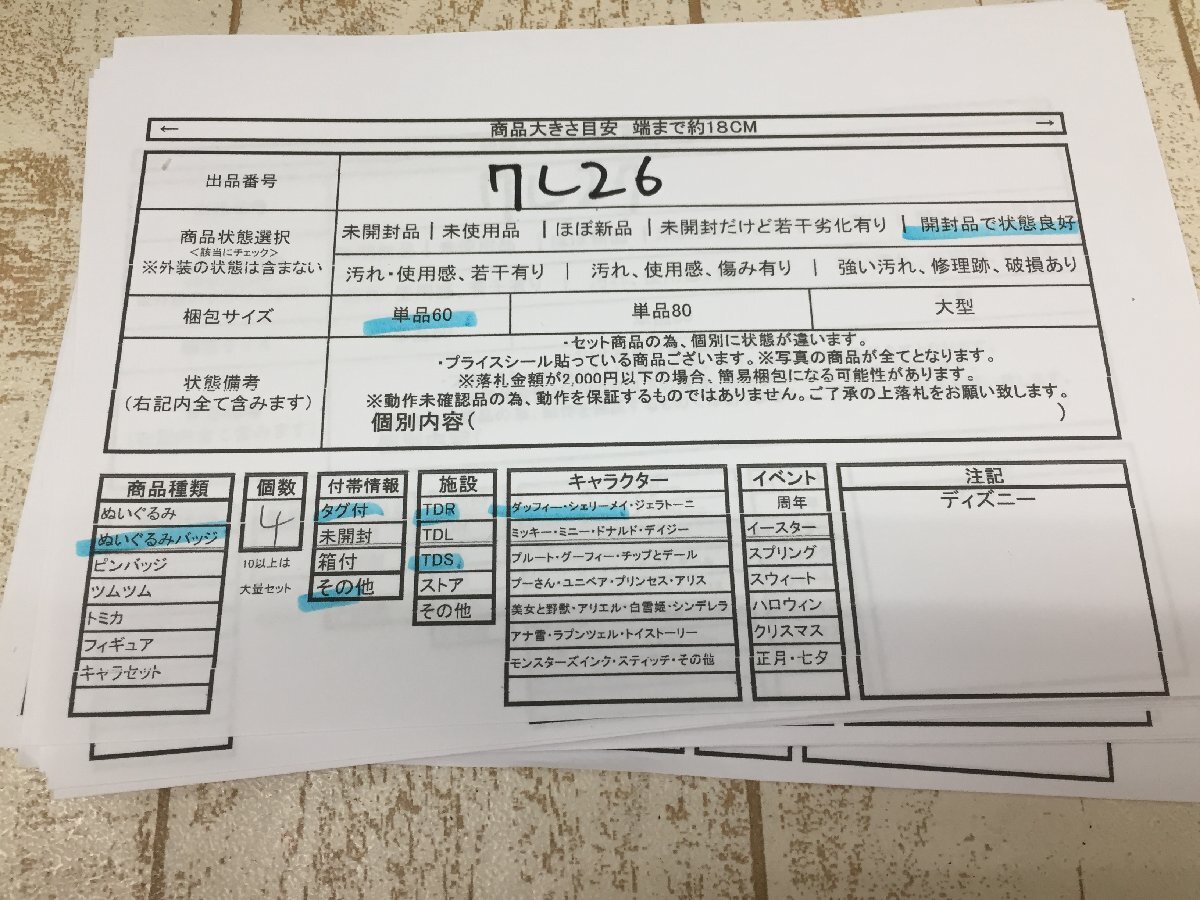 ← 商品大きさ目安 端まで約18CM →
出品番号 7L26
商品状態選択
<該当にチェック>
※外装の状態は含まない
未開封品 | 未使用品 | ほぼ新品 | 未開封だけど若干劣化有り | 開封品で状態良好
汚れ・使用感、若干有り | 汚れ、使用感、傷み有り | 強い汚れ、修理跡、破損あり
梱包サイズ 単品60 単品80 大型
状態備考
(右記内全て含みます)
・セット商品の為、個別に状態が違います。
・プライスシール貼っている商品ございます。※写真の商品が全てとなります。
※落札金額が2,000円以下の場合、簡易梱包になる可能性があります。
※動作未確認品の為、動作を保証するものではありません。ご了承の上落札をお願い致します。
個別内容( )
商品種類
ぬいぐるみ
ぬいぐるみバッジ
ピンバッジ
ツムツム
トミカ
フィギュア
キャラセット
個数
4
10以上は
大量セット
付帯情報
タグ付
未開封
箱付
その他
施設
TDR
TDL
TDS
ストア
その他
キャラクター
ダッフィー・シェリーメイ・ジェラトーニ
ミッキー・ミニー・ドナルド・デイジー
プルート・グーフィー・チップとデール
プーさん・ユニベア・プリンセス・アリス
美女と野獣・アリエル・白雪姫・シンデレラ
アナ雪・ラプンツェル・トイストーリー
モンスターズインク・スティッチ・その他
イベント
周年
イースター
スプリング
スウィート
ハロウィン
クリスマス
正月・七夕
注記
ディズニー